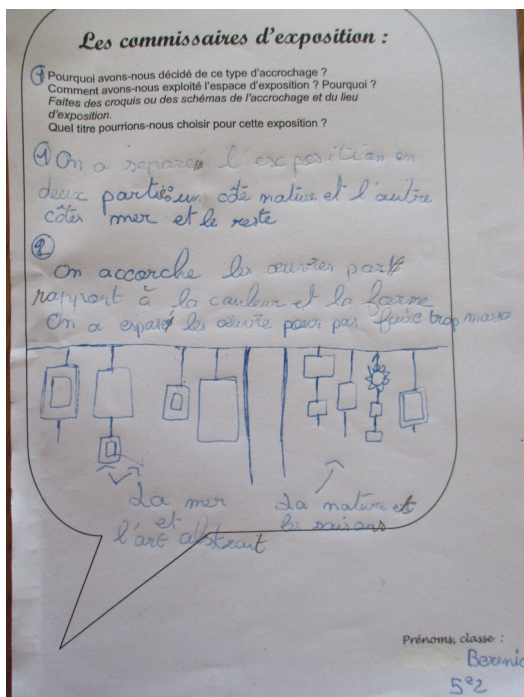 Les commissaires d'exposition :
1 Pourquoi avons-nous décidé de ce type d'accrochage ?
Comment avons-nous exploité l'espace d'exposition ? Pourquoi ?
Faites des croquis ou des schémas de l'accrochage et du lieu
d'exposition.
Quel titre pourrions-nous choisir pour cette exposition ?
1 On a separé l'exposition en
deux partie: un côté nature et l'autre
côtés mer et le reste
2
On accorche les œuvres par
rapport à la couleur et la forme
On a espacé les œuvre pour pas faire trop masse
La mer
et
l'art abstrait
La nature et
les saisons
Prénoms, classe :
Berenic
5e2